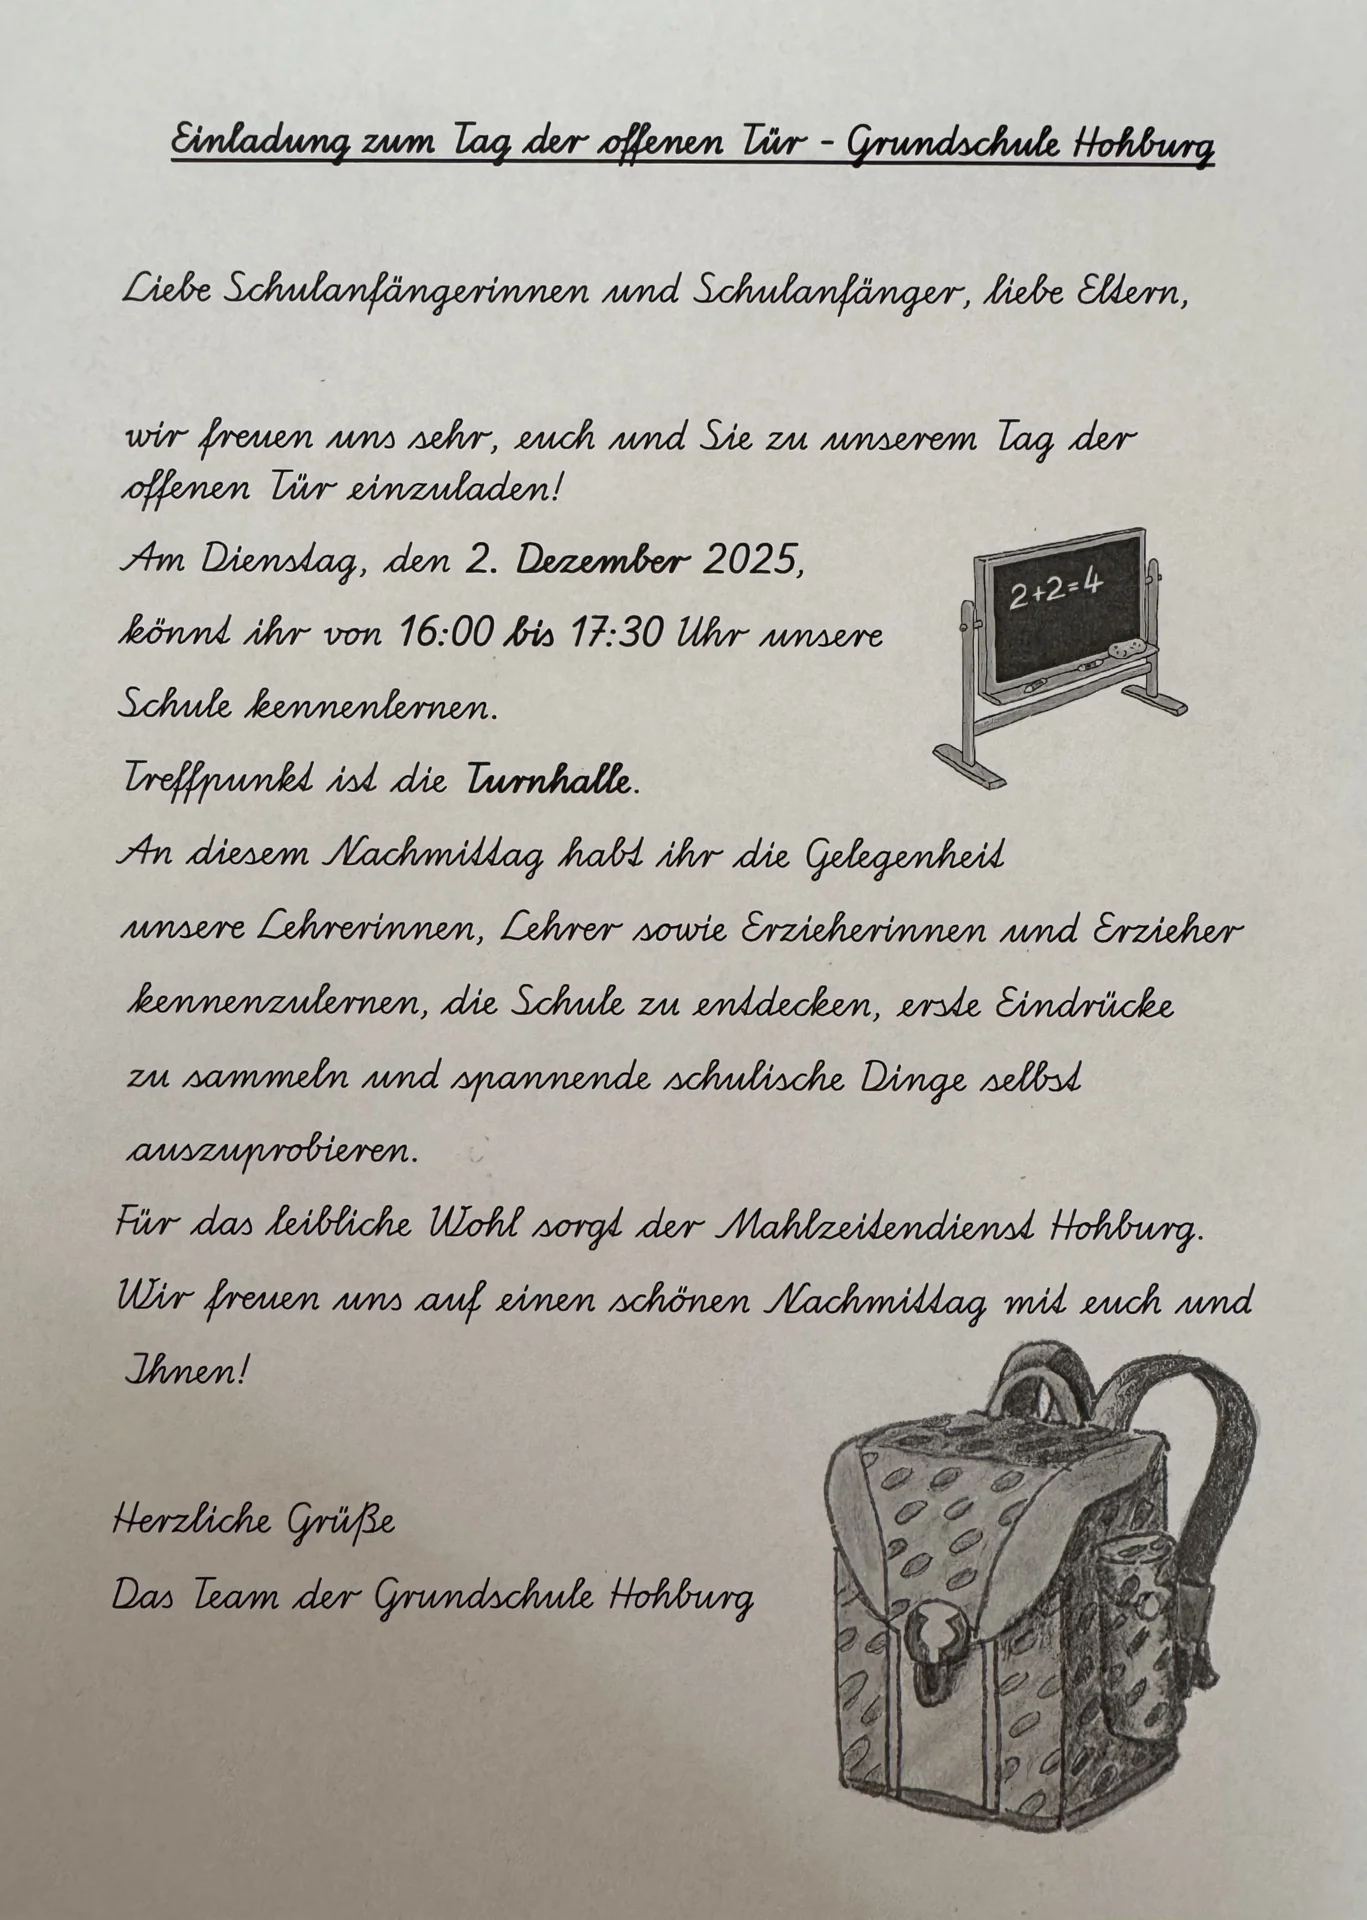 Einladung zum Tag der offenen Tür - Grundschule Hohburg
Liebe Schulanfängerinnen und Schulanfänger, liebe Eltern,
wir freuen uns sehr, euch und Sie zu unserem Tag der
offenen Tür einzuladen!
Am Dienstag, den 2. Dezember 2025,
2+2=4
könnt ihr von 16:00 bis 17:30 Uhr unsere
Schule kennenlernen.
Treffpunkt ist die Turnhalle.
An diesem Nachmittag habt ihr die Gelegenheit
unsere Lehrerinnen, Lehrer sowie Erzieherinnen und Erzieher
kennenzulernen, die Schule zu entdecken, erste Eindrücke
zu sammeln und spannende schulische Dinge selbst
auszuprobieren.
Für das leibliche Wohl sorgt der Mahlzeitendienst Hohburg.
Wir freuen uns auf einen schönen Nachmittag mit euch und
Ihnen!
Herzliche Grüße
Das Team der Grundschule Hohburg